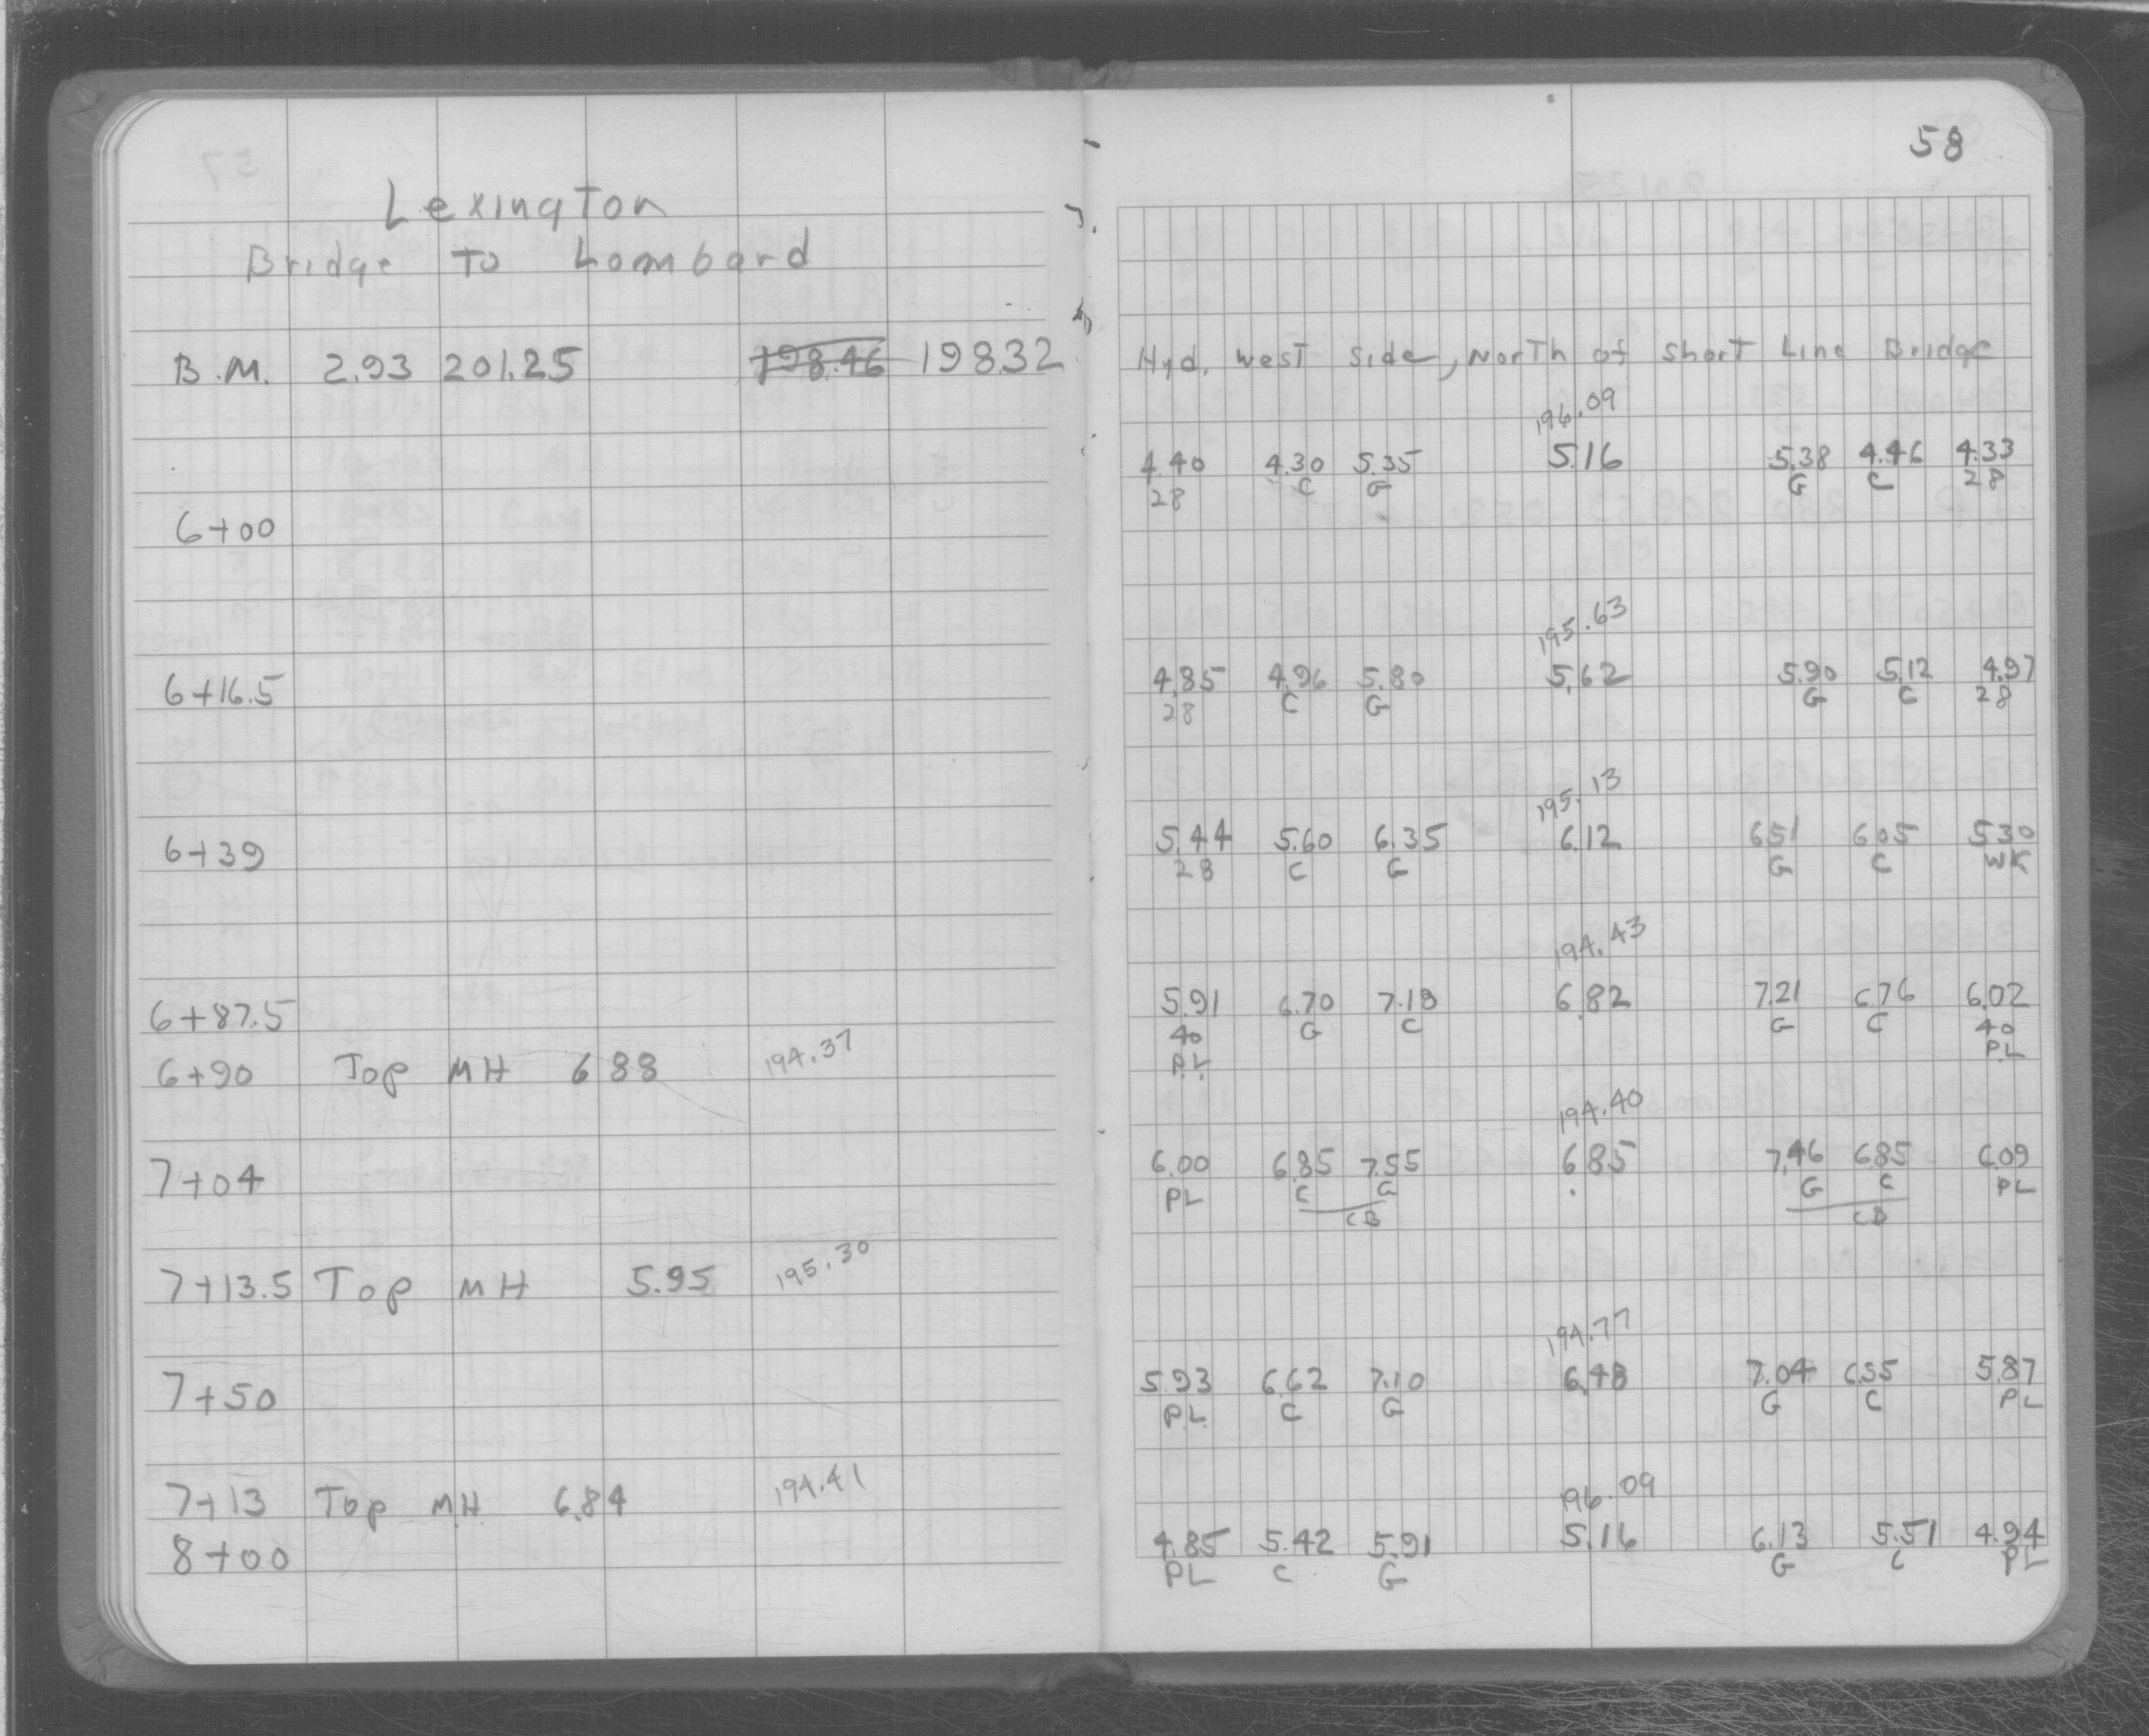 Lexington
Bridge To Lombard
B.M. 2.93 201.25 198.46 198.32
6+00
6+16.5
6+39
6+87.5
6+90 Top MH 6.88 194.37
7+04
7+13.5 Top MH 5.95 195.30
7+50
7+13 Top MH 6.84 194.41
8+00
58
Hyd. West Side, North of Short Line Bridge
196.09
4.40 4.30 5.35 5.16 5.38 4.46 4.33
28 C G G C 28
195.63
4.85 4.96 5.80 5.62 5.90 5.12 4.97
28 C G G C 28
195.13
5.44 5.60 6.35 6.12 6.51 6.05 5.30
28 C G G C WK
194.43
5.91 6.70 7.18 6.82 7.21 6.76 6.02
40 G C G C 40
P.L. P.L
194.40
6.00 6.85 7.55 6.85 7.46 6.85 6.09
PL C G G C PL
CB CB
194.77
5.93 6.62 7.10 6.48 7.04 6.55 5.87
P.L. C G G C PL
196.09
4.85 5.42 5.91 5.16 6.13 5.51 4.94
PL C G G C PL